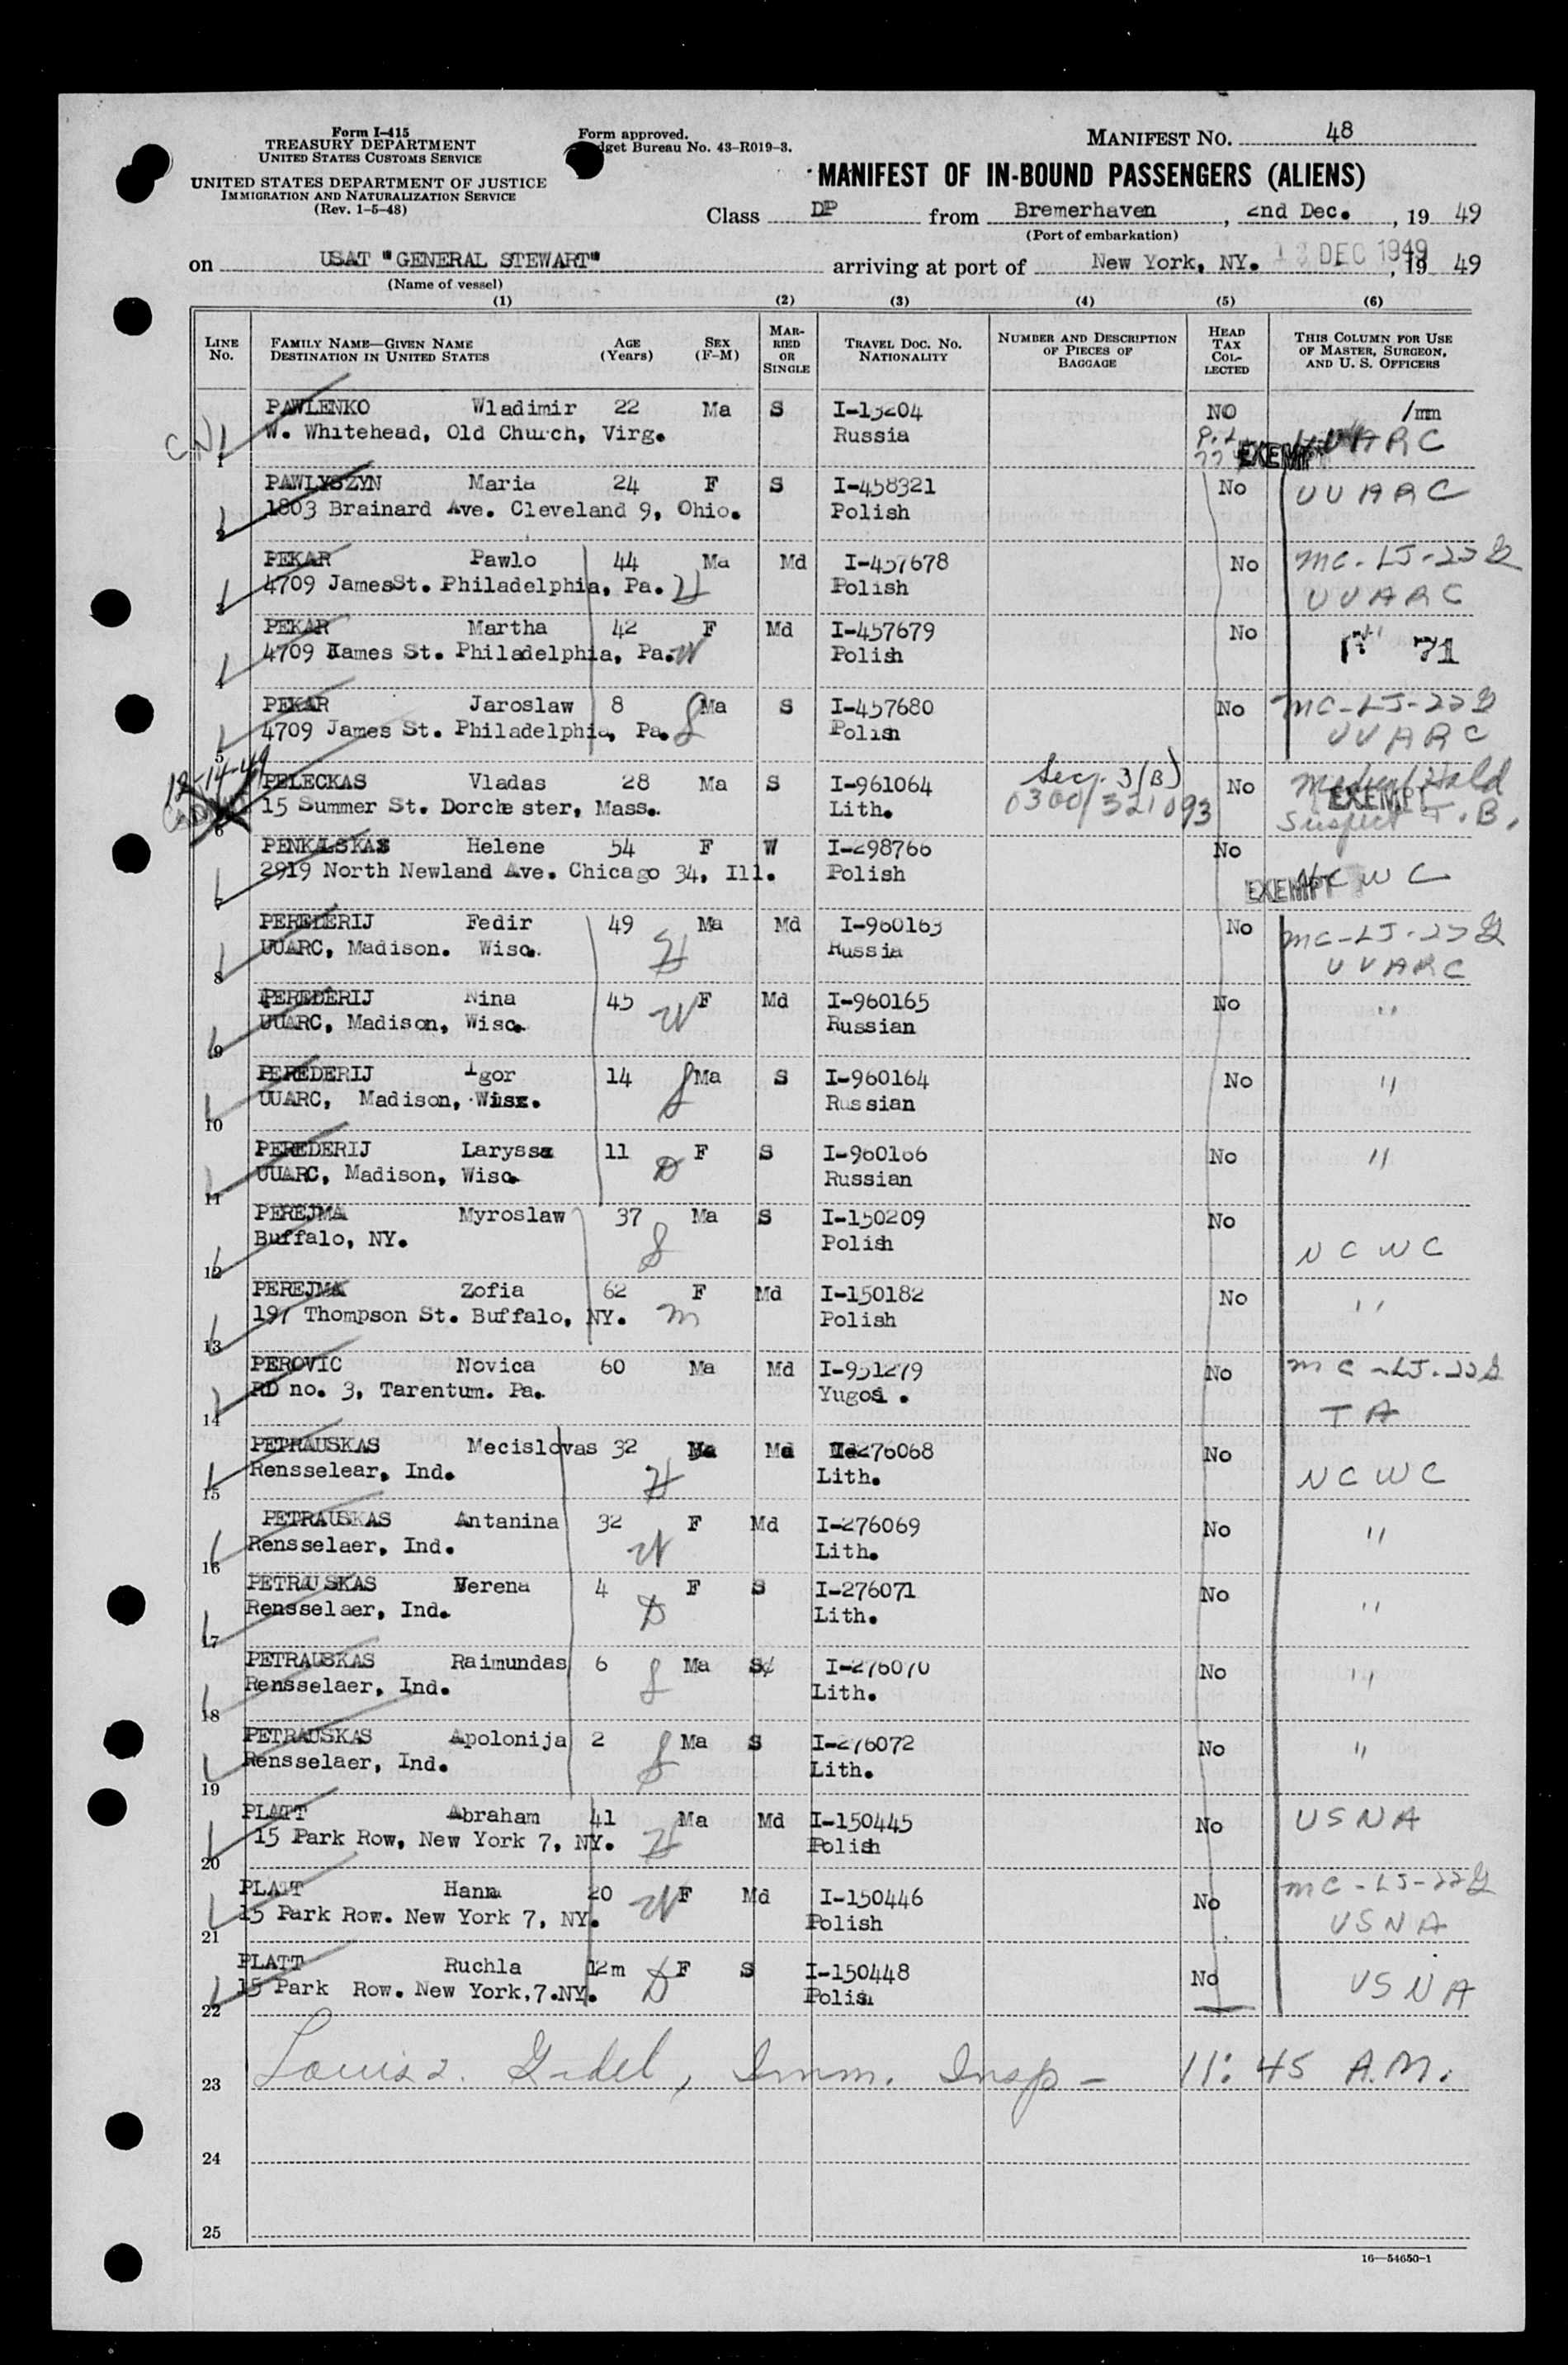 Form I-415
TREASURY DEPARTMENT
UNITED STATES CUSTOMS SERVICE
UNITED STATES DEPARTMENT OF JUSTICE
IMMIGRATION AND NATURALIZATION SERVICE
(Rev. 1-5-48)
Form approved.
dget Bureau No. 43-R019-3.
MANIFEST NO. 48
MANIFEST OF IN-BOUND PASSENGERS (ALIENS)
Class DP from Bremerhaven, 2nd Dec., 19 49
(Port of embarkation)
on USAT "GENERAL STEWART" arriving at port of New York, NY. 13 DEC 1949, 19 49
(Name of vessel)
(1) (2) (3) (4) (5) (6)
LINE NO. FAMILY NAME—GIVEN NAME DESTINATION IN UNITED STATES AGE (Years) SEX (F-M) MARRIED OR SINGLE TRAVEL DOC. NO. NATIONALITY NUMBER AND DESCRIPTION OF PIECES OF BAGGAGE HEAD TAX COLLECTED THIS COLUMN FOR USE OF MASTER, SURGEON, AND U. S. OFFICERS
PAWLENKO Wladimir 22 Ma S I-13204 NO /mm
1 W. Whitehead, Old Church, Virg. Russia EXEMPT UUARC
PAWLYSZYN Maria 24 F S I-458321 No UUARC
2 1803 Brainard Ave. Cleveland 9, Ohio. Polish
PEKAR Pawlo 44 Ma Md I-457678 No MC-LJ-22G
3 4709 JamesSt. Philadelphia, Pa. H Polish UUARC
PEKAR Martha 42 F Md I-457679 No
4 4709 James St. Philadelphia, Pa. W Polish 71
PEKAR Jaroslaw 8 Ma S I-457680 No MC-LJ-22G
5 4709 James St. Philadelphia, Pa. S Polish UUARC
12-14-49
PELECKAS Vladas 28 Ma S I-961064 Sec. 3(B) No Medical Hold
6 15 Summer St. Dorchester, Mass. Lith. 0300/321093 EXEMPT Suspect T.B.
PENKALSKAS Helene 54 F W I-298766 No
7 2919 North Newland Ave. Chicago 34, Ill. Polish EXEMPT NCWC
PEREDERIJ Fedir 49 Ma Md I-960163 No MC-LJ-22G
8 UUARC, Madison. Wisc. H Russia UUARC
PEREDERIJ Nina 45 W F Md I-960165 No "
9 UUARC, Madison, Wisc. Russian
PEREDERIJ Igor 14 S Ma S I-960164 No "
10 UUARC, Madison, Wisc. Russian
PEREDERIJ Laryssa 11 D F S I-960166 No "
11 UUARC, Madison, Wisc. Russian
PEREJMA Myroslaw 37 Ma S I-150209 No
12 Buffalo, NY. S Polish NCWC
PEREJMA Zofia 62 F Md I-150182 No "
13 197 Thompson St. Buffalo, NY. M Polish
PEROVIC Novica 60 Ma Md I-951279 No MC-LJ-22G
14 RD no. 3, Tarentum. Pa. Yugosl. TA
PETRAUSKAS Mecislovas 32 Ma Md 276068 No
15 Rensselear, Ind. H Lith. NCWC
PETRAUSKAS Antanina 32 F Md I-276069 No "
16 Rensselaer, Ind. W Lith.
PETRAUSKAS Verena 4 F S I-276071 No "
17 Rensselaer, Ind. D Lith.
PETRAUSKAS Raimundas 6 Ma S I-276070 No "
18 Rensselaer, Ind. S Lith.
PETRAUSKAS Apolonija 2 Ma S I-276072 No "
19 Rensselaer, Ind. S Lith.
PLATT Abraham 41 Ma Md I-150445 No USNA
20 15 Park Row, New York 7, NY. H Polish
PLATT Hanna 20 W F Md I-150446 No MC-LJ-22G
21 15 Park Row. New York 7, NY. Polish USNA
PLATT Ruchla 12m D F S I-150448 No USNA
22 15 Park Row. New York,7.NY. Polish
23 Louis Imm. Insp - 11:45 A.M.
24
25
16—54650-1